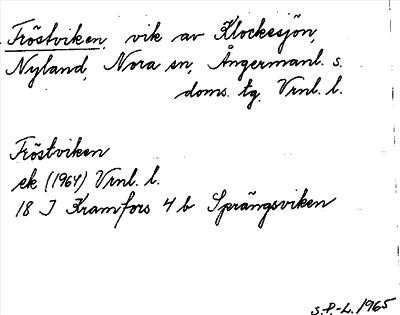 Fröstviken, vik av Klockesjön,
Nyland, Nora sn, Ångermanl. s.
doms. tg, Vrnl. l.
Fröstviken
ek (1964) Vrnl. l.
18 J Kramfors 4 b Sprängsviken
S.P.-L. 1965